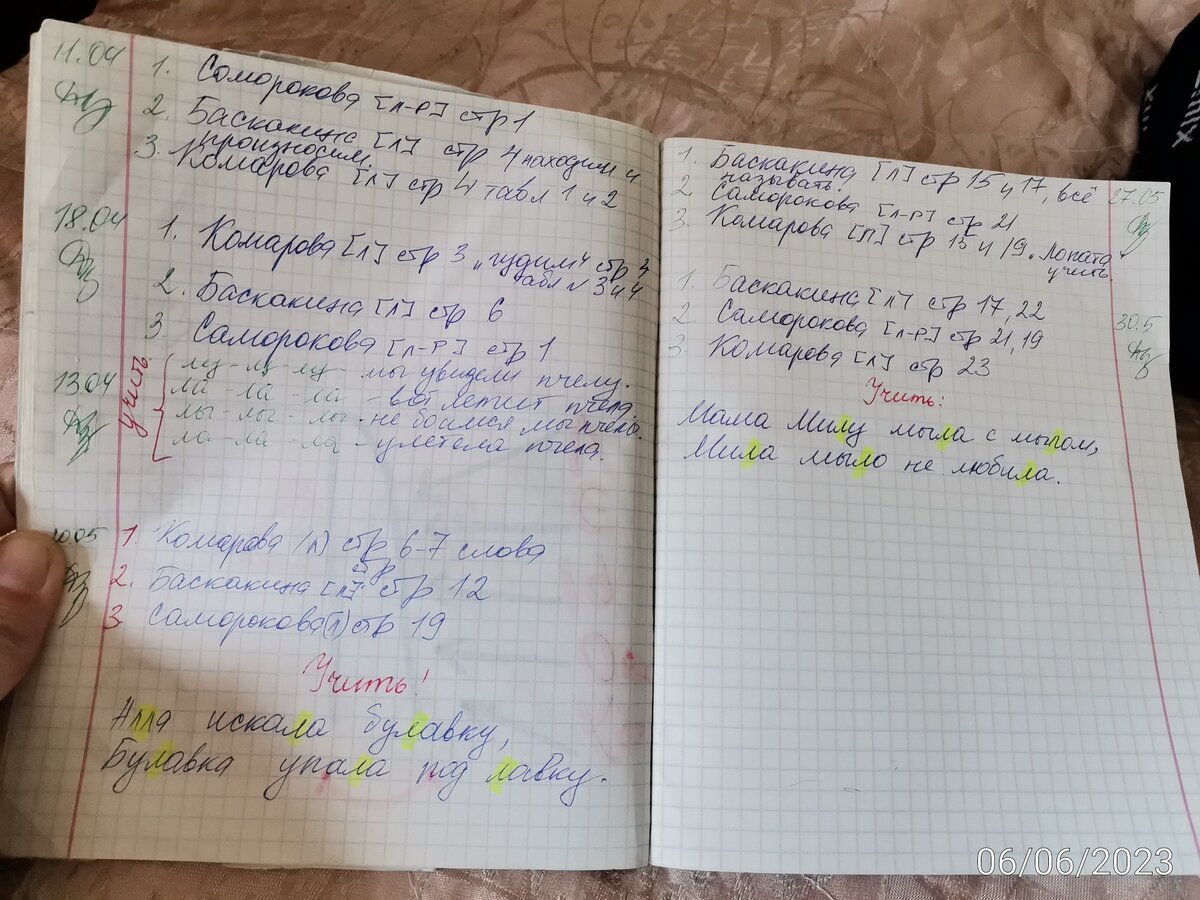 11.04
ДЗ
1. Соморокова [л-р] стр 1
2. Баскакина [л] стр 4 находим и
произносим.
3. Комарова [л] стр 4 табл 1 и 2
18.04
ДЗ
1. Комарова [л] стр 3 „гудим" стр 4
табл № 3 и 4
2. Баскакина [л] стр 6
3. Саморокова [л-р] стр 1
13.04
ДЗ
учить
лу-лу-лу - мы увидели пчелу.
ла-ла-ла - вот летит пчела.
лы-лы-лы - не боимся мы пчелы.
ла-ла-ла - улетела пчела.
10.05
ДЗ
1. Комарова (л) стр 6-7 слова
стр
2. Баскакина [л] стр 12
3 Саморокова (л) стр 19
Учить!
Алла искала булавку,
Булавка упала под лавку.
27.05
ДЗ
1. Баскакина [л] стр 15 и 17, всё
называть.
2 Саморокова [л-р] стр 21
3. Комарова [л] стр 15 и 19 „Лопата"
учить.
30.5
ДЗ
1. Баскакина [л] стр 17, 22
2 Саморокова [л-р] стр 21, 19
3. Комарова [л] стр 23
Учить:
Мама Милу мыла с мылом,
Мила мыло не любила.
XII
XIII
06/06/2023